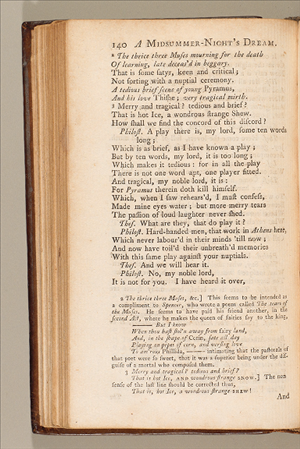 140 A MIDSUMMER-NIGHT'S DREAM.
² The thrice three Muses mourning for the death
Of learning, late deceas'd in beggary.
That is some satyr, keen and critical;
Not sorting with a nuptial ceremony.
A tedious brief scene of young Pyramus,
And his love Thisbe; very tragical mirth.
³ Merry and tragical? tedious and brief?
That is hot Ice, a wondrous strange Shew.
How shall we find the concord of this discord?
Philost. A play there is, my lord, some ten words
long;
Which is as brief, as I have known a play;
But by ten words, my lord, it is too long;
Which makes it tedious: for in all the play
There is not one word apt, one player fitted.
And tragical, my noble lord, it is:
For Pyramus therein doth kill himself.
Which, when I saw rehears'd, I must confess,
Made mine eyes water; but more merry tears
The passion of loud laughter never shed.
Thes. What are they, that do play it?
Philost. Hard-handed men, that work in Athens here,
Which never labour'd in their minds 'till now;
And now have toil'd their unbreath'd memories
With this same play against your nuptials.
Thes. And we will hear it.
Philost. No, my noble lord,
It is not for you. I have heard it over,
2 The thrice three Muses, &c.] This seems to be intended as
a compliment to Spenser, who wrote a poem called The tears of
the Muses. He seems to have paid his friend another, in the
second Act, where he makes the queen of fairies say to the king,
——— But I know
When thou hast stol'n away from fairy land,
And, in the shape of Corin, sate all day
Playing on pipes of corn, and versing love
To am'rous Phillida, —— intimating that the pastorals of
that poet were so sweet, that it was a superior being under the dis-
guise of a mortal who composed them.
3 Merry and tragical? tedious and brief?
That is hot Ice, AND wondrous strange SNOW.] The non
sense of the last line should be corrected thus,
That is, hot Ice, a wondrous strange SHEW!
And